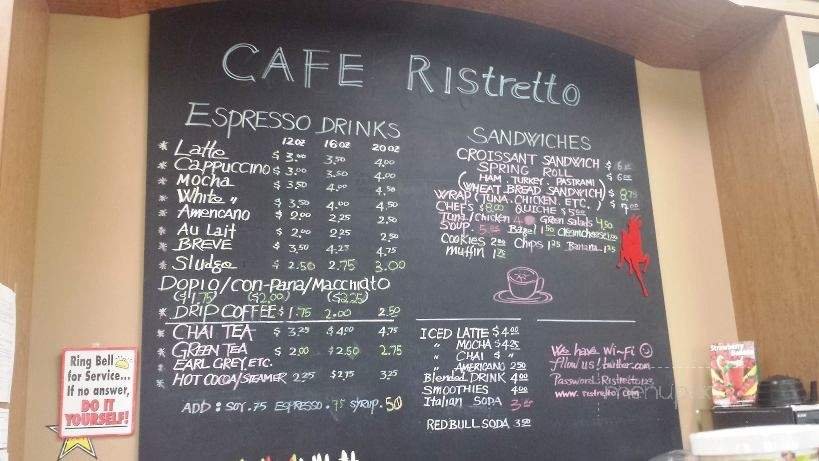 CAFE RIStretto
ESPRESSO DRINKS
12oz 16oz 20oz
* Latte $3.00 3.50 4.00
* Cappuccino $3.00 3.50 4.00
* Mocha $3.50 4.00 4.50
* White " $3.50 4.00 4.50
* Americano $2.00 2.25 2.50
* Au Lait $2.00 2.25 2.50
* BREVE $3.50 4.25 4.75
* Sludge $2.50 2.75 3.00
Dopio/Con-Pana/Macchiato
($1.75) ($2.00) ($2.25)
* DRIP COFFEE $1.75 2.00 2.50
* CHAI TEA $3.25 $4.00 4.75
* GREEN TEA $2.00 $2.50 2.75
EARL GREY, ETC.
* HOT COCOA/STEAMER 2.25 $2.75 3.25
ADD: SOY .75 ESPRESSO .75 syrup .50
SANDWICHES
CROISSANT SANDWICH $6
SPRING ROLL $6
(HAM, TURKEY, PASTRAMI)
(WHEAT BREAD SANDWICH) $
WRAP (TUNA, CHICKEN, ETC.) $7.00
CHEFS $8.00 QUICHE $5
Tuna/Chicken Green salads 4.50
SOUP Bagel 1.50 Creamcheese
Cookies 2.00 Chips 1.25 Banana
muffin 1.75
ICED LATTE $4.00
" MOCHA $4.25
" CHAI $ "
" AMERICANO 2.50
Blended DRINK 4.00
SMOOTHIES 4.00
Italian SODA
REDBULL SODA
We have Wi-Fi
fllow us! twitter.com
Password: Ristretto123
www.ristretto.com
Ring Bell
for Service...
If no answer,
DO IT
YOURSELF!
Strawberry